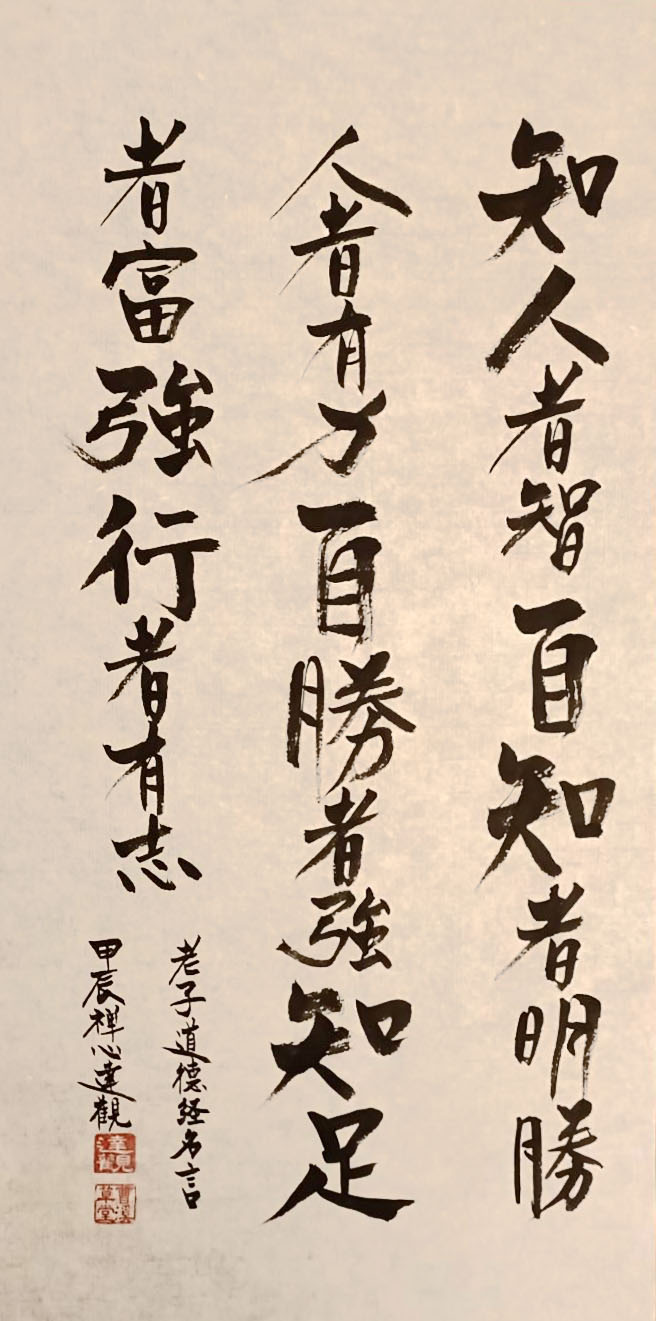 知人者智自知者明勝
人者有力自勝者強知足
者富強行者有志
老子道德経名言
甲辰禅心達觀
達觀
曹溪草堂